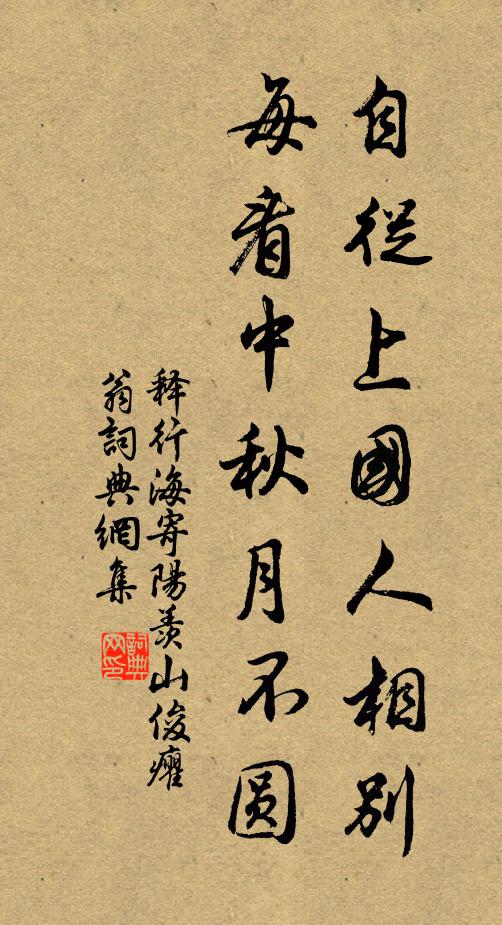 自從上國人相別
每看中秋月不圓
释行海寄陽羨山俊癯
翁詞典網集
詞典网印